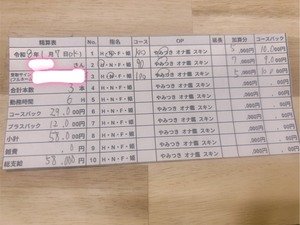 精算表 No. 指名 コース OP 延長 加算分 コースバック
令和3年1月7日 1 H・N・F・姫 100 やみつき オナ鑑 スキン 5,000円 10,000円
さん 2 H・N・F・姫 80 やみつき オナ鑑 スキン 7,000円 9,000円
3 H・N・F・姫 100 やみつき オナ鑑 スキン 5,000円 10,000円
合計本数 3 本 4 H・N・F・姫 やみつき オナ鑑 スキン ,000円 ,000円
勤務時間 6 時間 5 H・N・F・姫 やみつき オナ鑑 スキン ,000円 ,000円
コースバック 29,000円 6 H・N・F・姫 やみつき オナ鑑 スキン ,000円 ,000円
プラスバック ,000円 7 H・N・F・姫 やみつき オナ鑑 スキン ,000円 ,000円
小計 58,000円 8 H・N・F・姫 やみつき オナ鑑 スキン ,000円 ,000円
雑費 0円 9 H・N・F・姫 やみつき オナ鑑 スキン ,000円 ,000円
総支給 58,000円 10 H・N・F・姫 やみつき オナ鑑 スキン ,000円 ,000円